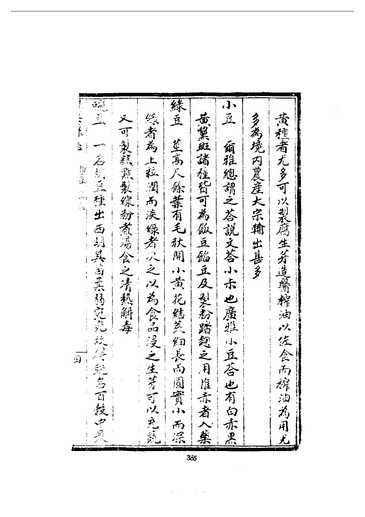 黃種者尤多可以製腐生芽造醬榨油以佐食而榨油為用尤
多為境內農產大宗輸出甚多
小豆 爾雅總謂之荅說文荅小尗也廣雅小豆荅也有白赤黑
黃黧斑諸種皆可為飯豆餡豆及製粉踏麯之用惟赤者入藥
綠豆 莖高尺餘葉有毛秋開小黃花結莢細長而圓實小而深
綠者為上粒潤而淡綠者次之以為食品浸之生芽可以充蔬
又可製糕點製綠粉煮湯食之清熱解毒
豌豆 一名胡豆種出西胡其苗柔弱宛宛故得豌名百穀中最
385